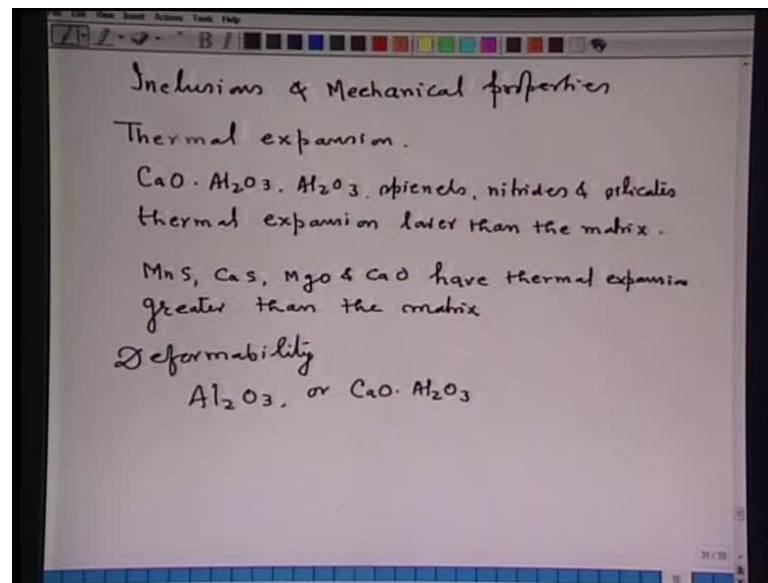 Insert Actions Tools Help
Inclusions & Mechanical properties
Thermal expansion.
CaO. Al2O3. Al2O3. spienels, nitrides & silicates
thermal expansion lower than the matrix.
MnS, CaS, MgO & CaO have thermal expansion
greater than the matrix
Deformability
Al2O3. or CaO. Al2O3